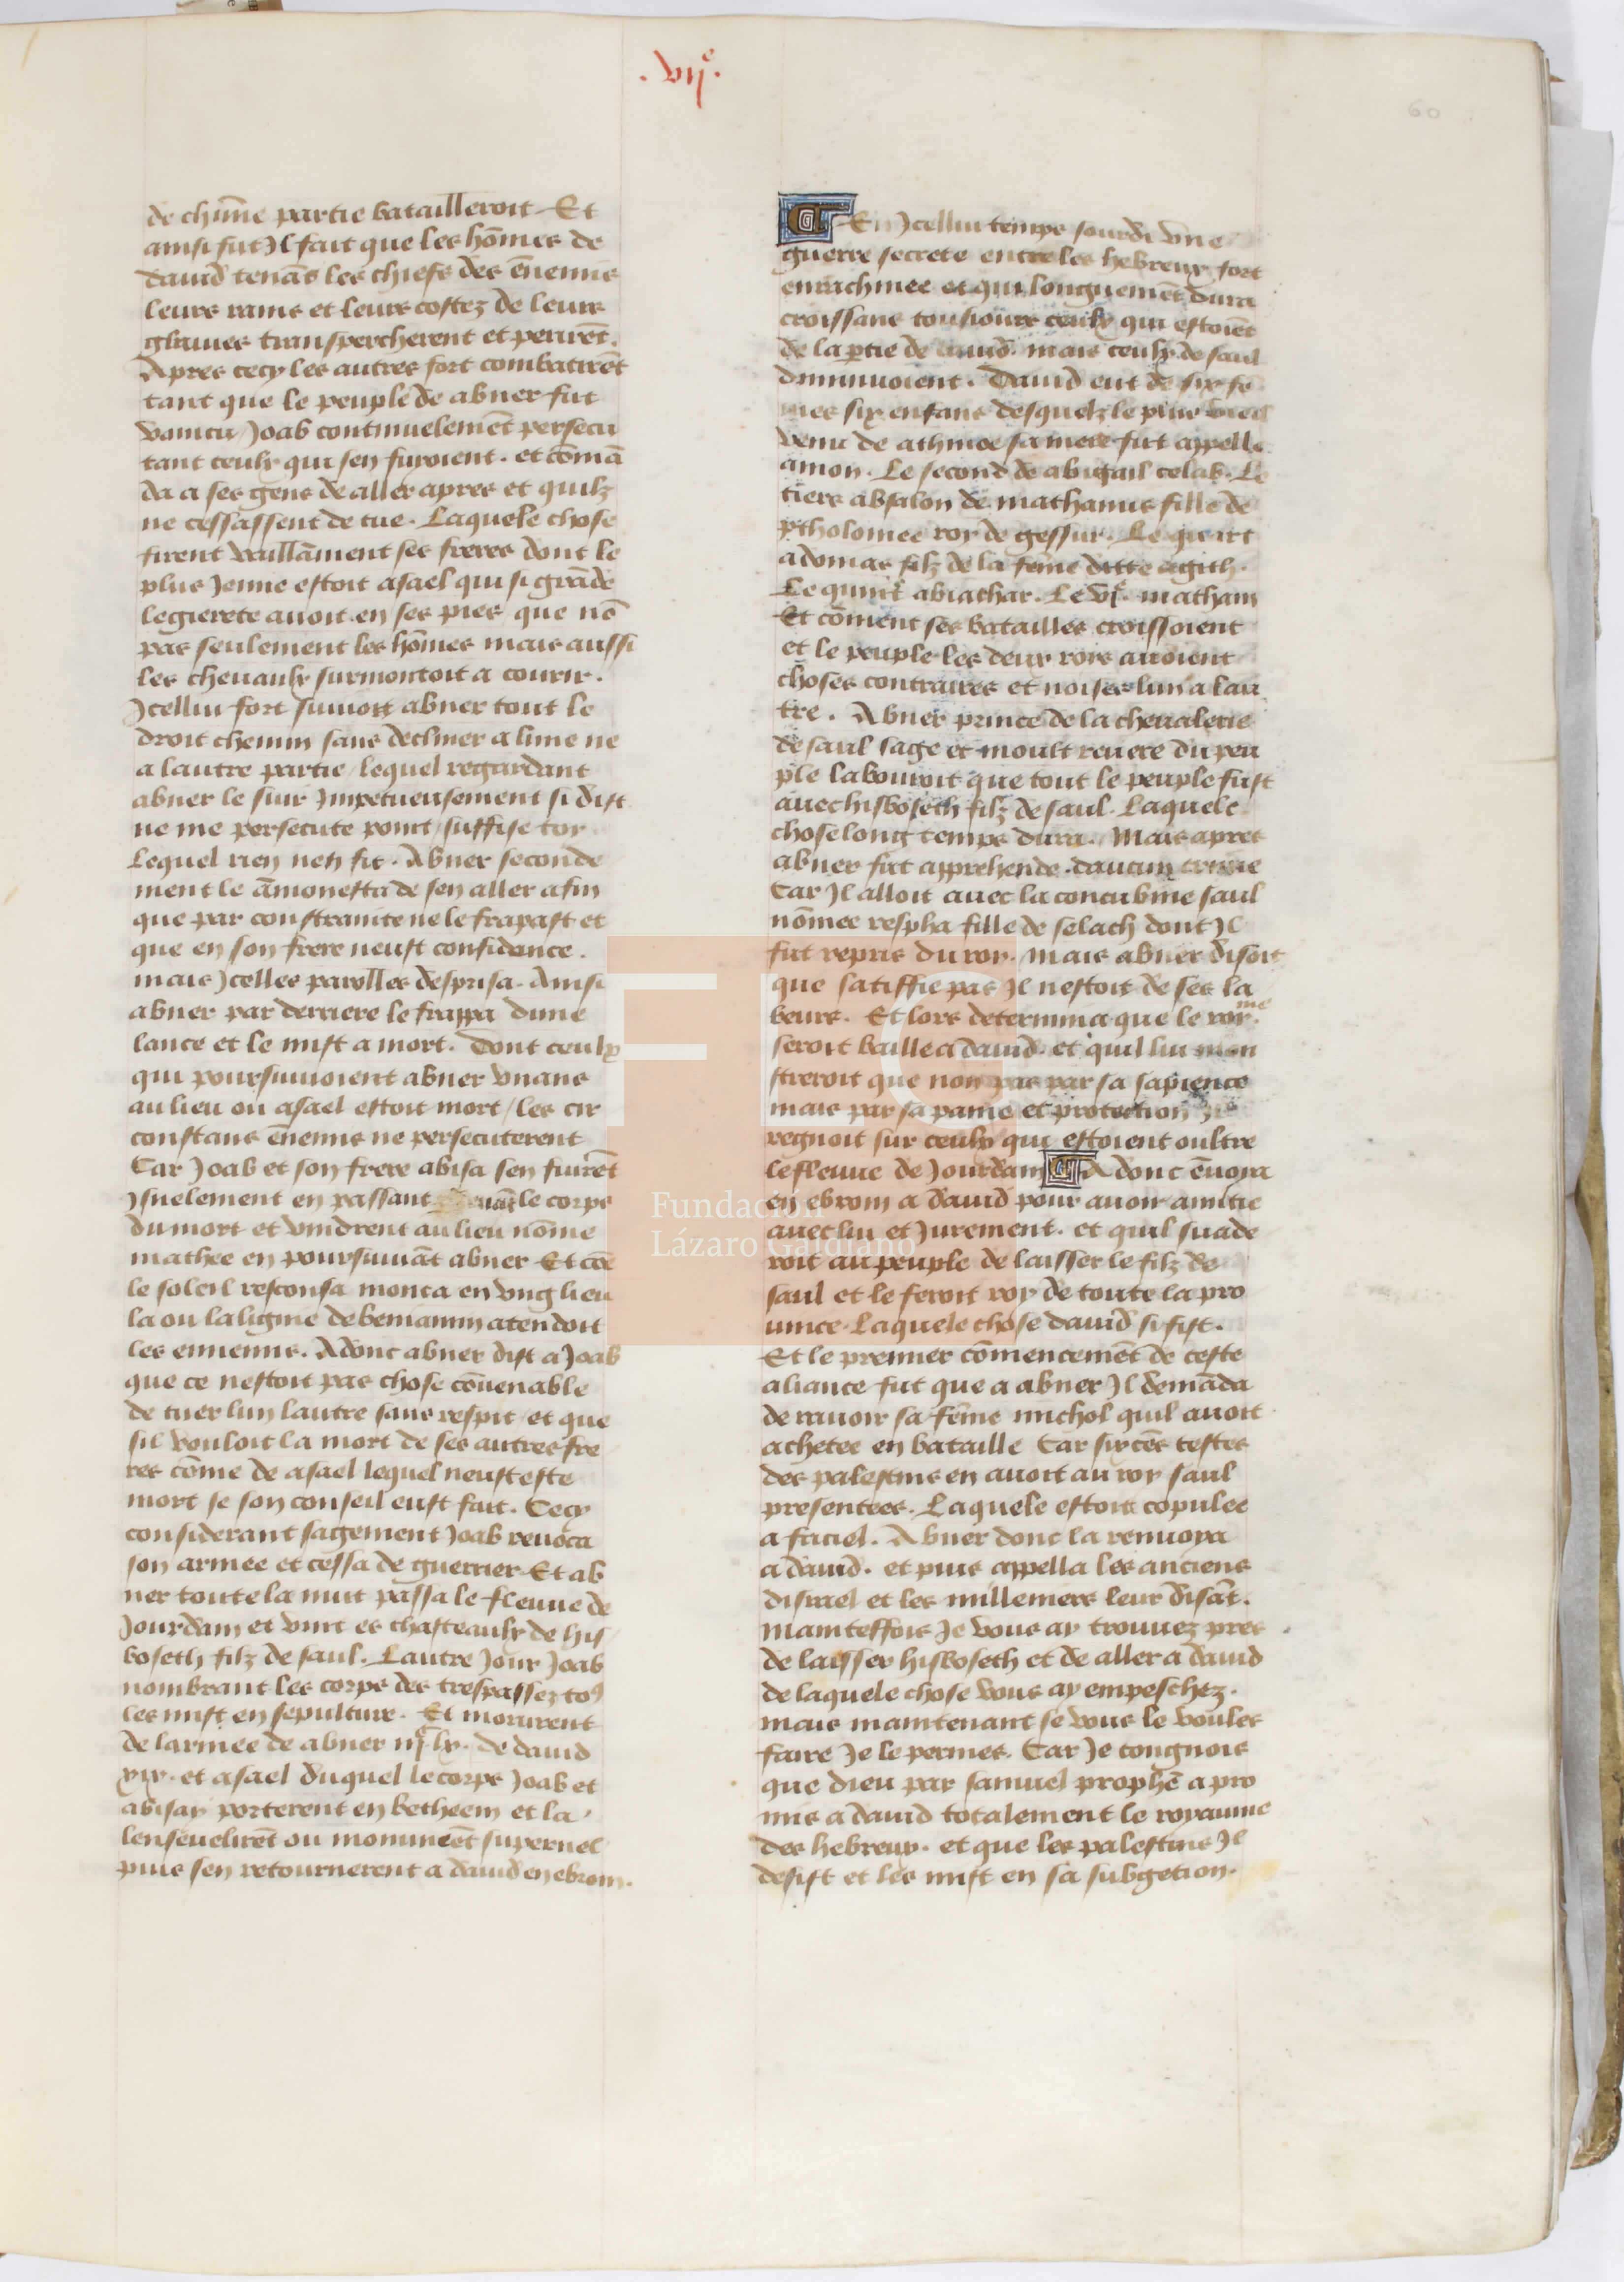 .vij^e.
60
de chũne partie batailleroit Et
ainsi fut Jl fait que les hõmes de
dauid tenãs les chiefs des ẽnemis
leurs rains et leurs costez de leurs
glaiues transpercherent et perirẽt.
Apres cecy les autres fort combatirẽt
tant que le peuple de abner fut
vaincu / Joab continuelemẽt persecu
tant ceulx qui sen fuioient. et cõmã
da a ses gens de aller apres et quilz
ne cessassent de tue. Laquele chose
firent vaillãment ses freres dont le
plus Jenne estoit asael qui si grãde
legierete auoit en ses pies que nõ
pas seulement les hõmes mais aussi
les cheuaulx surmontoit a courir.
Jcellui fort suiuoit abner tout le
droit chemin sans decliner a lune ne
a lautre partie / lequel regardant
abner le suir Jmpetueusement si dist
ne me persecute point / suffise toy
Lequel rien nen fit. Abner seconde
ment le ãmonesta de sen aller afin
que par constrainte ne le frapast et
que en son frere neust confidence.
mais Jcelles parolles desprisa. Ainsi
abner par derriere le frappa dune
lance et le mist a mort. Dont ceulx
qui poursuiuoient abner vnans
au lieu ou asael estoit mort / les cir
constans ẽnemis ne persecuterent
Car Joab et son frere abisa sen fuirẽt
Jsnelement en passant le corps
du mort et vindrent au lieu nõme
mathee en poursuiuãt abner Et cõe
le soleil resconsa monta en vng lieu
la ou la lignie de beniamin atendoit
les ennemis. Adonc abner dist a Joab
que ce nestoit pas chose cõuenable
de tuer lun lautre sans respit / et que
sil vouloit la mort de ses autres fre
res cõme de asael lequel neust este
mort se son conseil eust fait. Cecy
considerant sagement Joab reuoca
son armee et cessa de guerrier Et ab
ner toute la nuit passa le fleuue de
Jourdain et vint es chasteaulx de his
boseth filz de saul. Lautre Jour Joab
nombrant les corps des trespassez to9
les mist en sepulture. Et morurent
de larmee de abner iij^c lx. de dauid
xix. et asael duquel le corps Joab et
abisay porterent en betheem et la
lenseuelirẽt ou monumẽt supernel
puis sen retournerent a dauid en ebrom.
En Jcellui temps sourdi vne
guerre secrete entre les hebreux fort
enrachinee et qui longuemẽt dura
croissans tousiours ceulx qui estoiẽt
de la ꝑtie de dauid. mais ceulx de saul
diminuoient. Dauid eut de six fe
mes six enfans desquelz le plus vieil
venu de athinoe sa mere fut appelle
amon. Le second de abigail celab. Le
tiers absalon de mathanus fille de
ptholomee roy de gessur. Le quart
adomas filz de la feme ditte agith.
Le quint abiathar. Le vj^e. matham
Et cõment ses batailles croissoient
et le peuple les deux rois auoient
choses contraires et noises lun a lau
tre. Abner prince de la cheualerie
de saul sage et moult reuere du peu
ple labouroit que tout le peuple fust
auec hisboseth filz de saul. Laquele
chose long temps dura. Mais apres
abner fut apprehende daucun crisme
Car Jl alloit auec la concubine saul
nõmee respha fille de selach dont Jl
fut repris du roy. mais abner disoit
que satiffie pas Jl nestoit de ses la
beurs. Et lors determina que le roy.^me
seroit baille a dauid. et quil lui mon
streroit que non pas par sa sapience
mais par sa paine et protection Jl
regnoit sur ceulx qui estoient oultre
le fleuue de Jourdain Adonc ẽnoya
en ebrom a dauid pour auoir amitie
auec lui et Jurement. et quil suade
roit au peuple de laisser le filz de
saul et le feroit roy de toute la pro
uince. Laquele chose dauid si fist.
Et le premier cõmencemẽt de ceste
aliance fut que a abner Jl demãda
de rauoir sa fẽme michol quil auoit
achetee en bataille Car six cẽs testes
des palestins en auoit au roy saul
presentees. Laquele estoit copulee
a faciel. Abner donc la renuoya
a dauid. et puis appella les anciens
disrael et les milleniers leur disãt.
mainteffois Je vous ay trouuez pres
de laisser hisboseth et de aller a dauid
de laquele chose vous ay empeschez.
mais maintenant se vous le voules
faire Je le permes. Car Je congnois
que dieu par samuel prophẽ a pro
mis a dauid totalement le royaume
des hebreux. et que les palestins Jl
desist et les mist en sa subgetion.
Fundación
Lázaro Galdiano